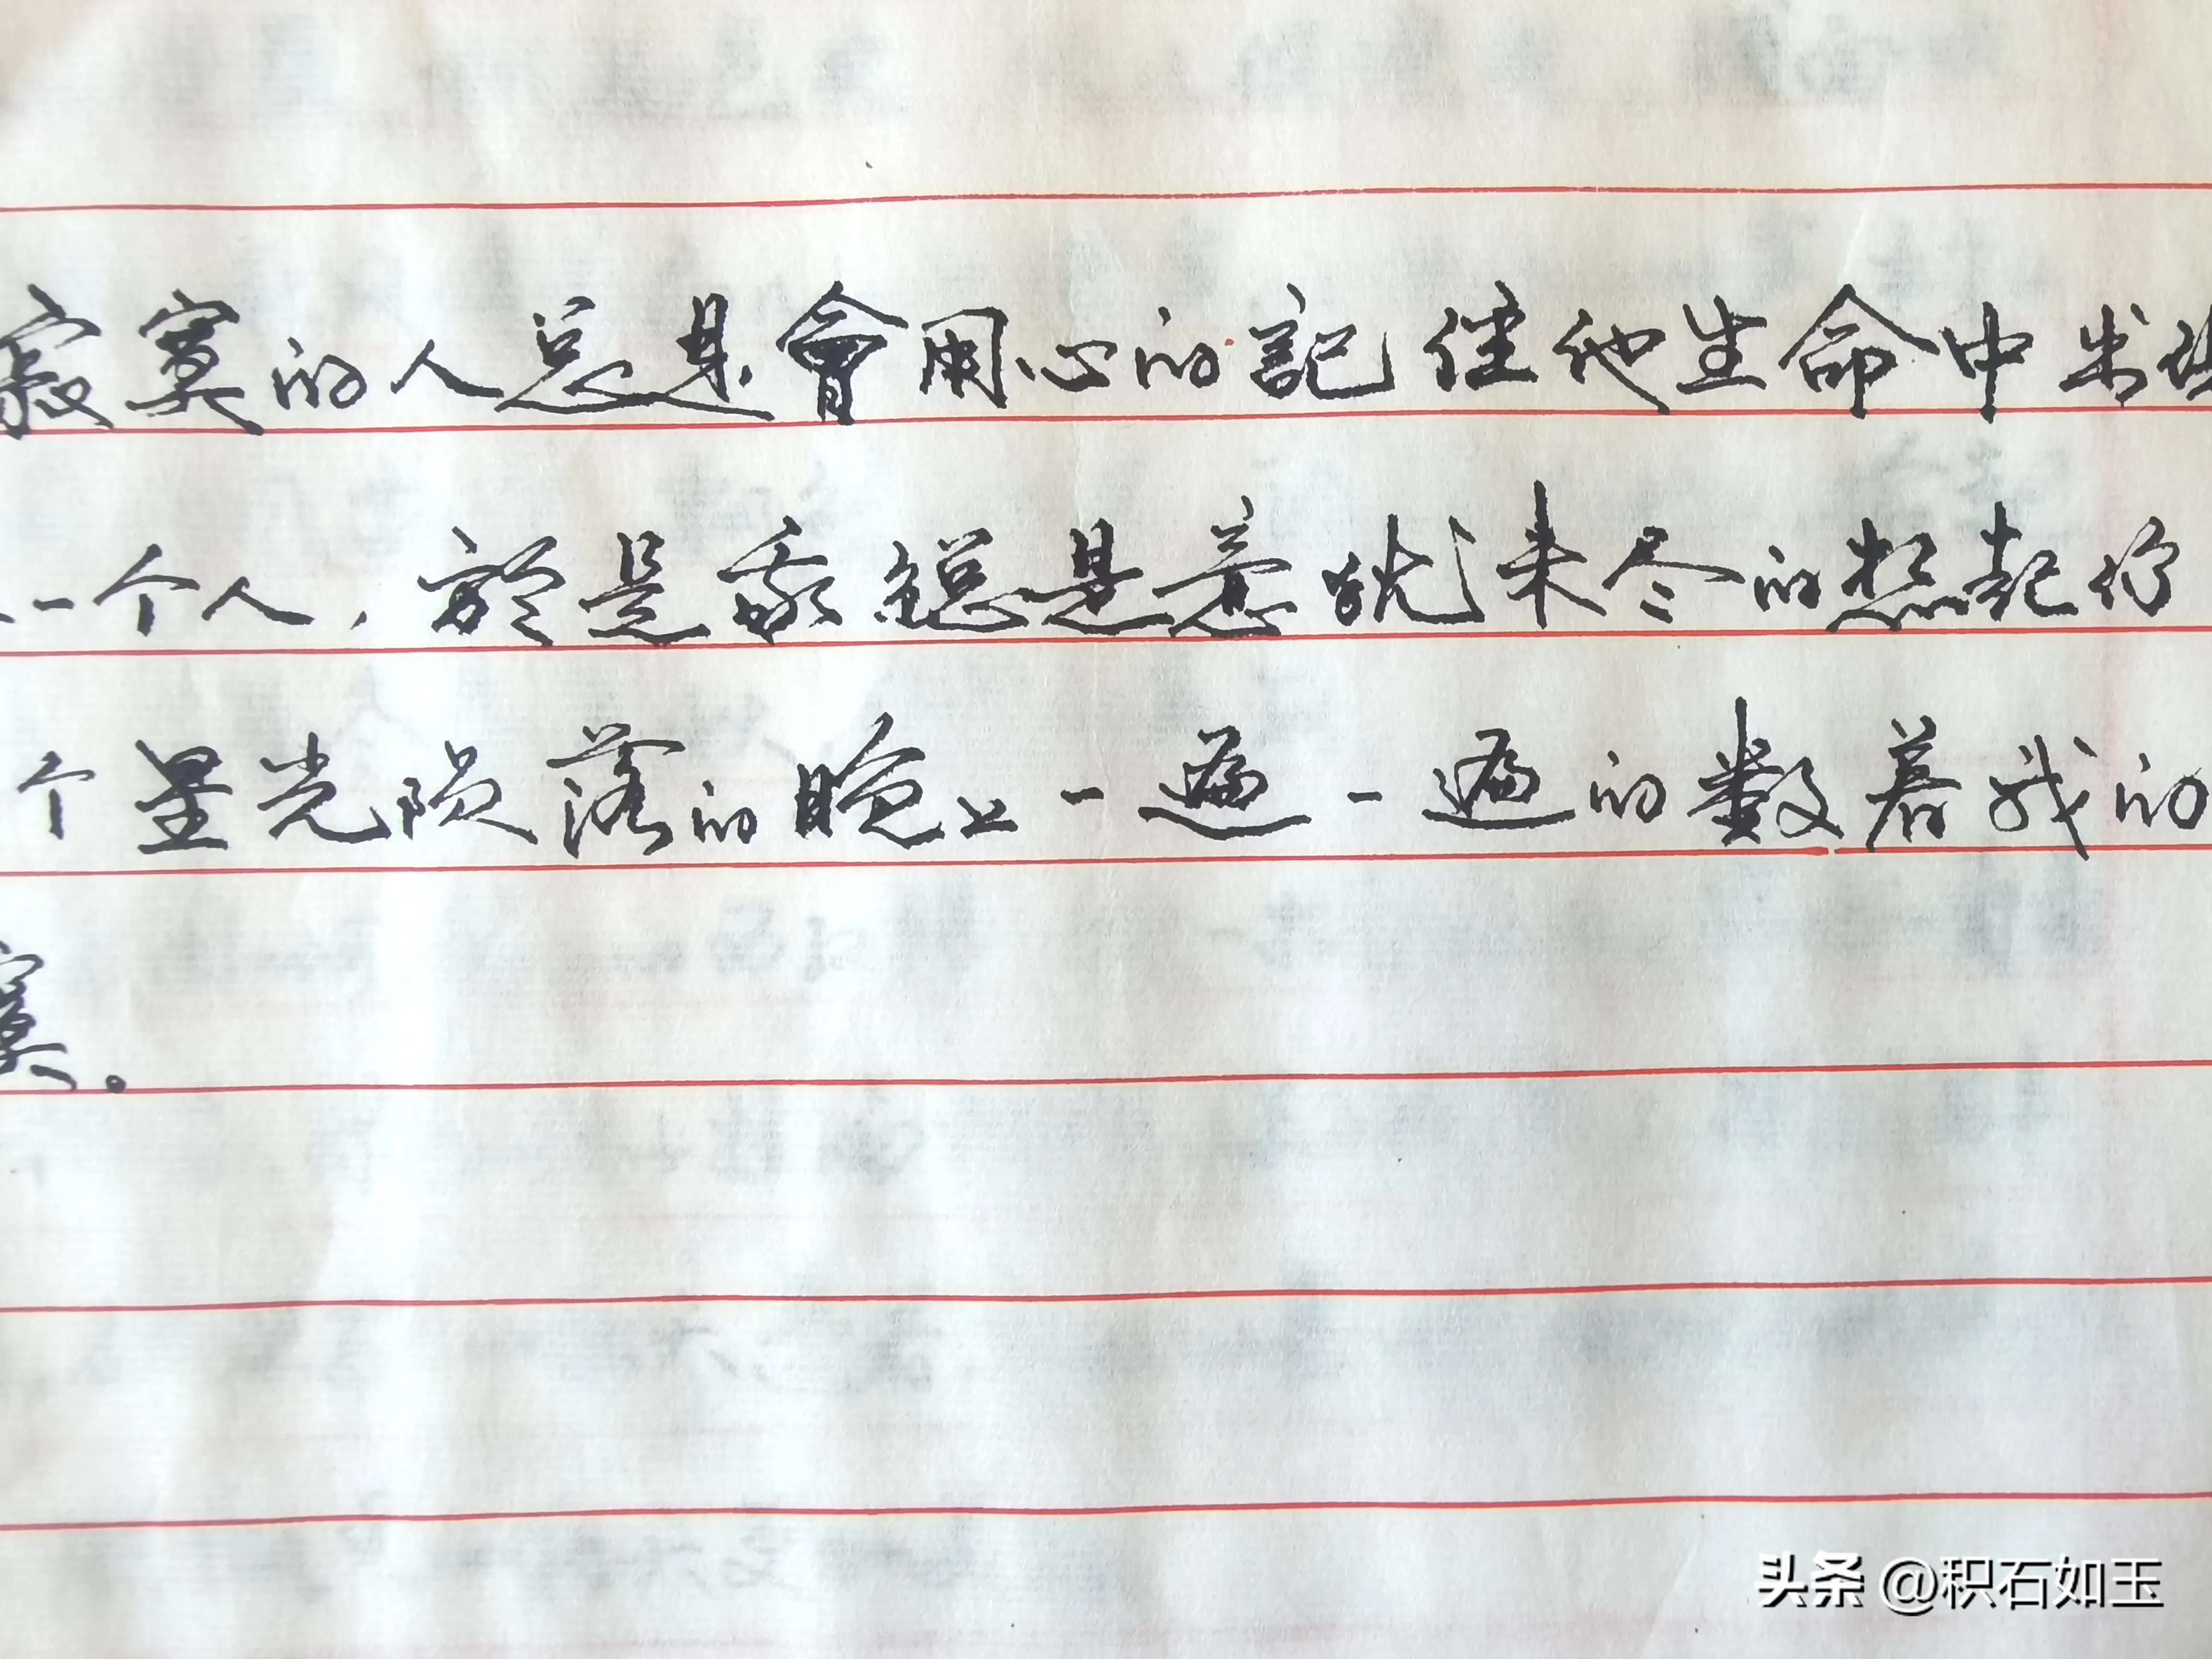 寂寞的人总是會用心的記住他生命中出
一个人，於是我總是意犹未尽的想起你
个星光陨落的晚上一遍一遍的数着我的
寞。
头条 @积石如玉